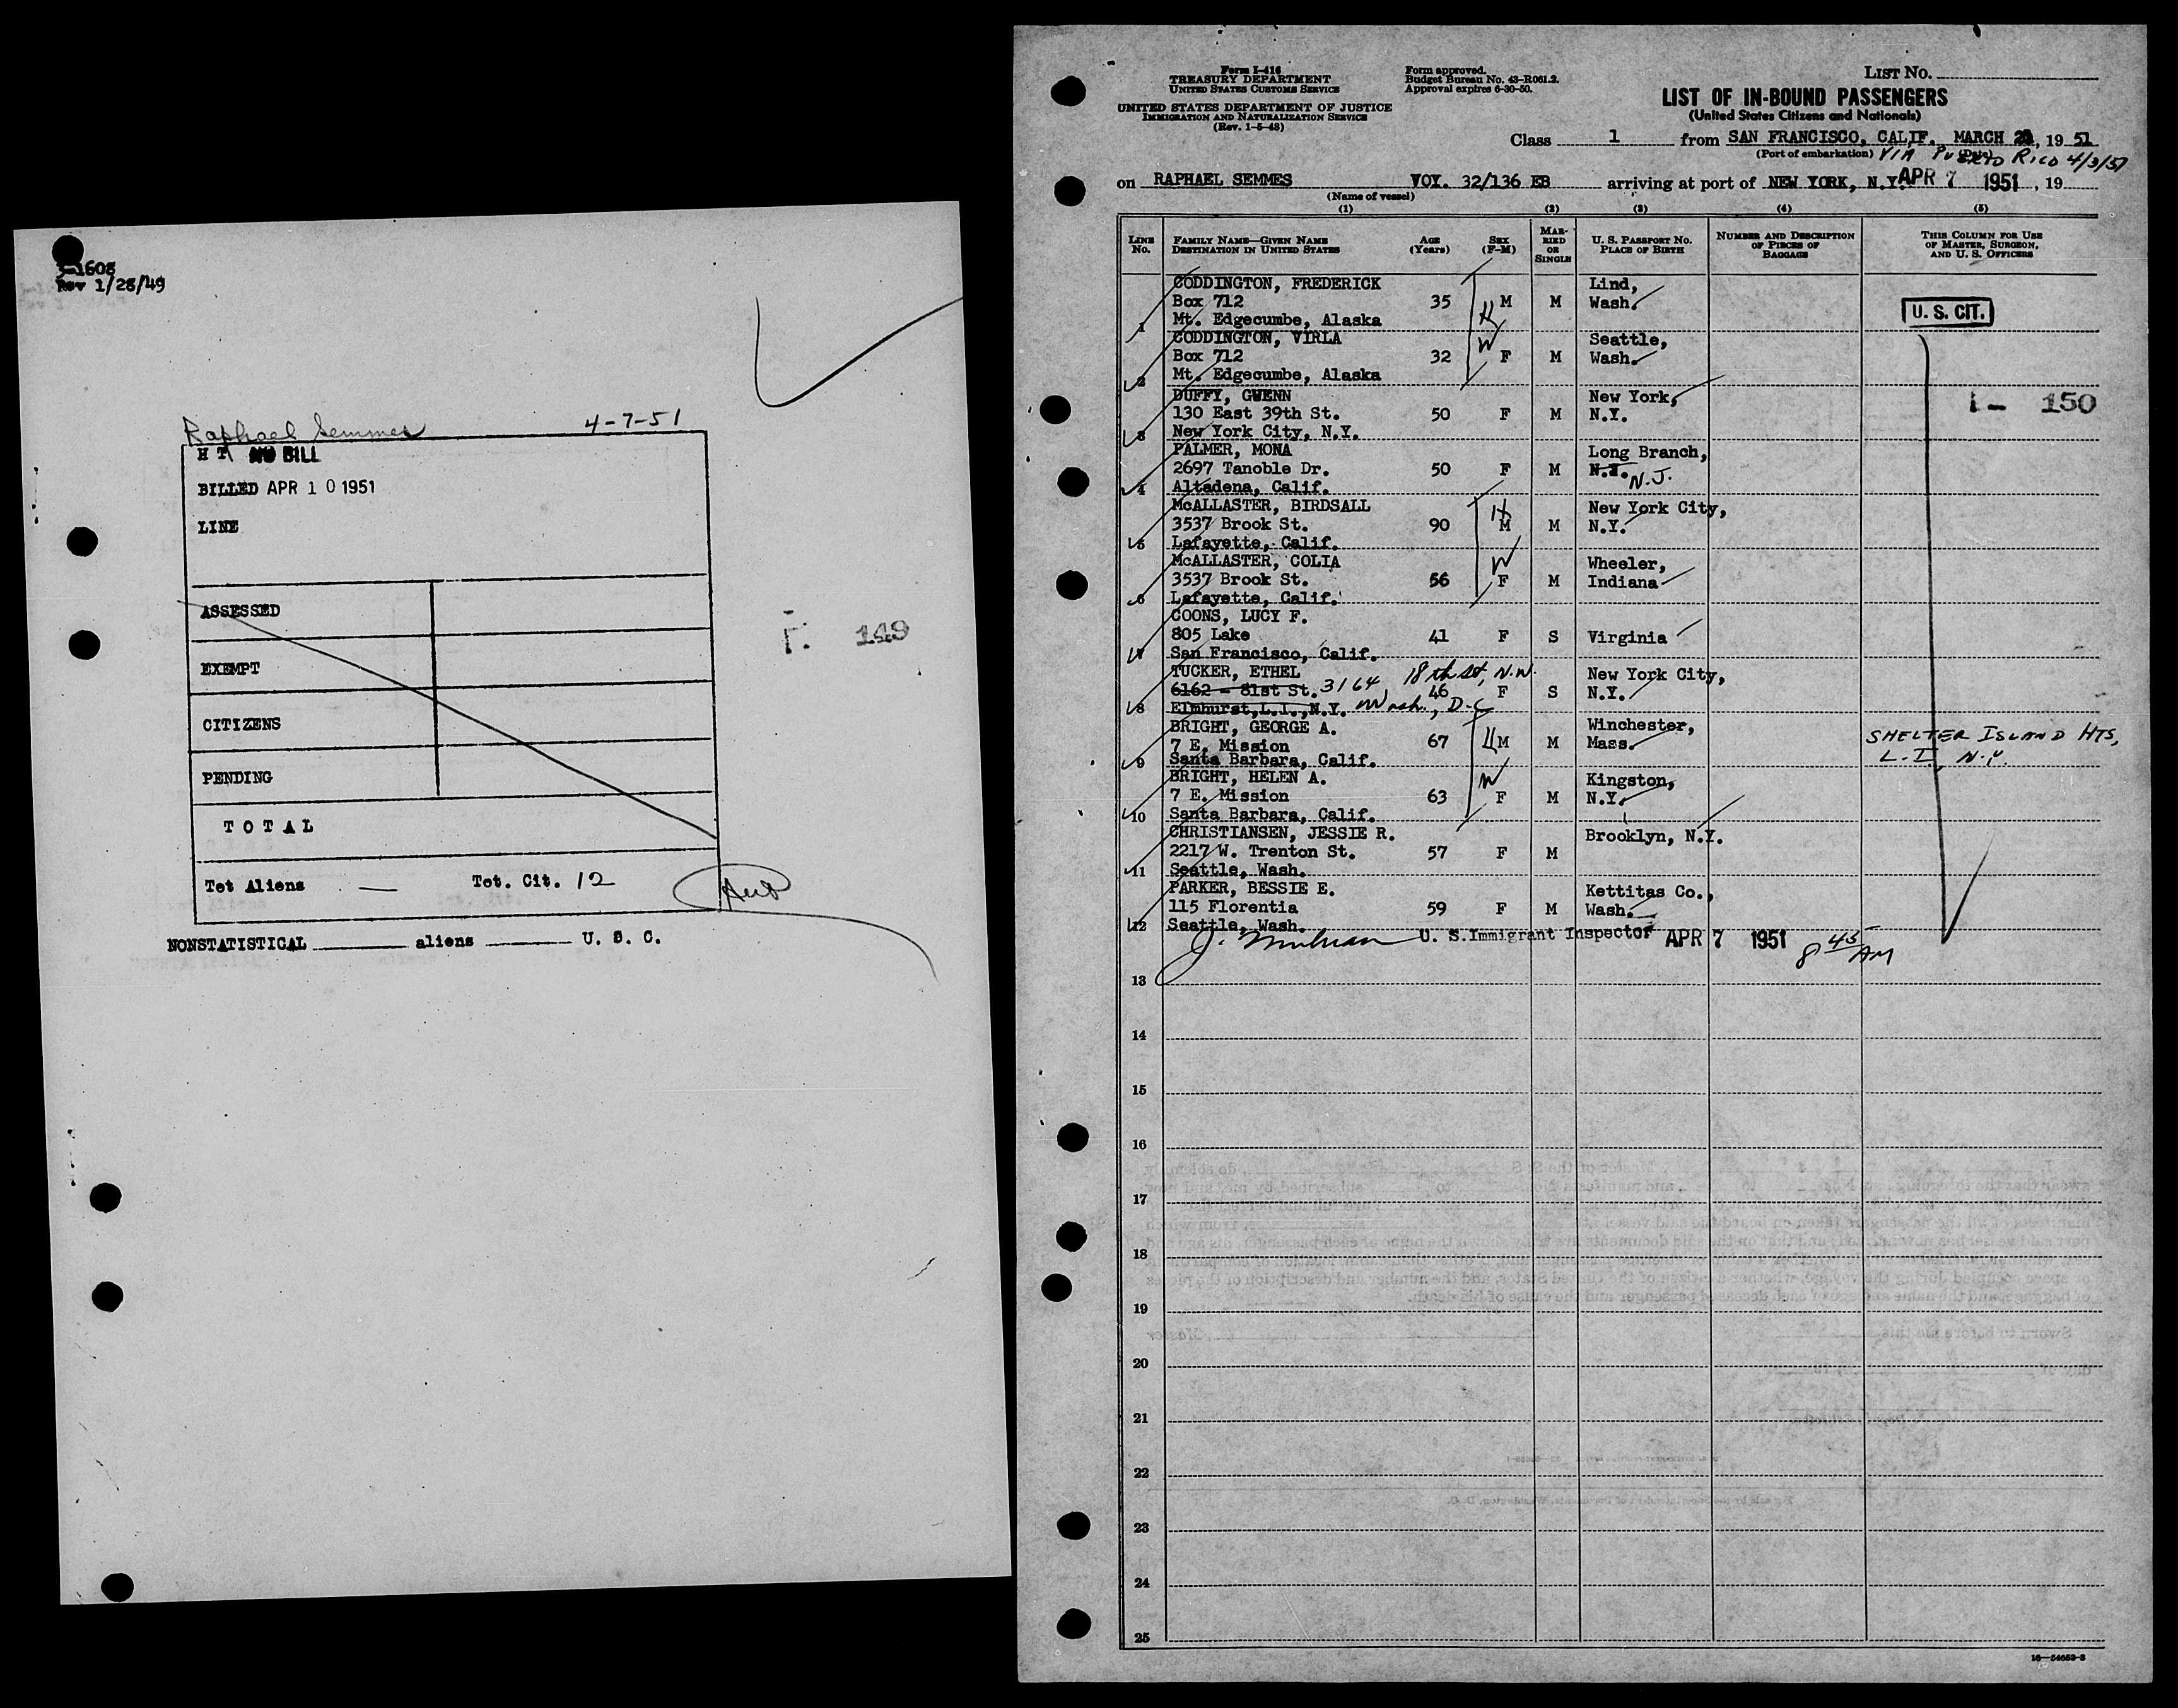 3-1608
Rev 1/28/49
Raphael Semmes 4-7-51
H T NO BILL
BILLED APR 10 1951
LINE
ASSESSED
EXEMPT
CITIZENS
PENDING
T O T A L
Tot Aliens — Tot. Cit. 12
NONSTATISTICAL aliens U. S. C.
149
Form I-416
TREASURY DEPARTMENT
UNITED STATES CUSTOMS SERVICE
UNITED STATES DEPARTMENT OF JUSTICE
IMMIGRATION AND NATURALIZATION SERVICE
(Rev. 1-5-48)
Form approved.
Budget Bureau No. 43-R061.2.
Approval expires 6-30-50.
LIST NO.
LIST OF IN-BOUND PASSENGERS
(United States Citizens and Nationals)
Class 1 from SAN FRANCISCO, CALIF. MARCH , 19 51
(Port of embarkation) (Date) VIA PUERTO RICO 4/3/51
on RAPHAEL SEMMES VOY. 32/136 EB arriving at port of NEW YORK, N.Y. APR 7 1951, 19
(Name of vessel)
(1) (2) (3) (4) (5)
LINE NO.
FAMILY NAME—GIVEN NAME
DESTINATION IN UNITED STATES
AGE
(Years)
SEX
(F-M)
MARRIED OR SINGLE
U. S. PASSPORT NO.
PLACE OF BIRTH
NUMBER AND DESCRIPTION
OF PIECES OF
BAGGAGE
THIS COLUMN FOR USE
OF MASTER, SURGEON,
AND U. S. OFFICERS
CODDINGTON, FREDERICK Lind,
Box 712 35 H M M Wash. U. S. CIT.
1 Mt. Edgecumbe, Alaska
CODDINGTON, VIRLA W Seattle,
Box 712 32 F M Wash.
2 Mt. Edgecumbe, Alaska
DUFFY, GWENN New York,
130 East 39th St. 50 F M N.Y. 150
3 New York City, N.Y.
PALMER, MONA Long Branch,
2697 Tanoble Dr. 50 F M N.Y. N.J.
4 Altadena, Calif.
McALLASTER, BIRDSALL H New York City,
3537 Brook St. 90 M M N.Y.
5 Lafayette, Calif.
McALLASTER, COLIA W Wheeler,
3537 Brook St. 56 F M Indiana
6 Lafayette, Calif.
COONS, LUCY F.
805 Lake 41 F S Virginia
7 San Francisco, Calif.
TUCKER, ETHEL 18th St, N.W. New York City,
6162 - 81st St. 3164 46 F S N.Y.
8 Elmhurst, L.I., N.Y. Wash., D-C
BRIGHT, GEORGE A. Winchester,
7 E. Mission 67 H M M Mass. SHELTER ISLAND HTS,
9 Santa Barbara, Calif. L.I. N.Y.
BRIGHT, HELEN A. W Kingston,
7 E. Mission 63 F M N.Y.
10 Santa Barbara, Calif.
CHRISTIANSEN, JESSIE R. Brooklyn, N.Y.
2217 W. Trenton St. 57 F M
11 Seattle, Wash.
PARKER, BESSIE E. Kettitas Co.,
115 Florentia 59 F M Wash.
12 Seattle, Wash.
U. S. Immigrant Inspector APR 7 1951 8 45 AM
13
14
15
16
17
18
19
20
21
22
23
24
25